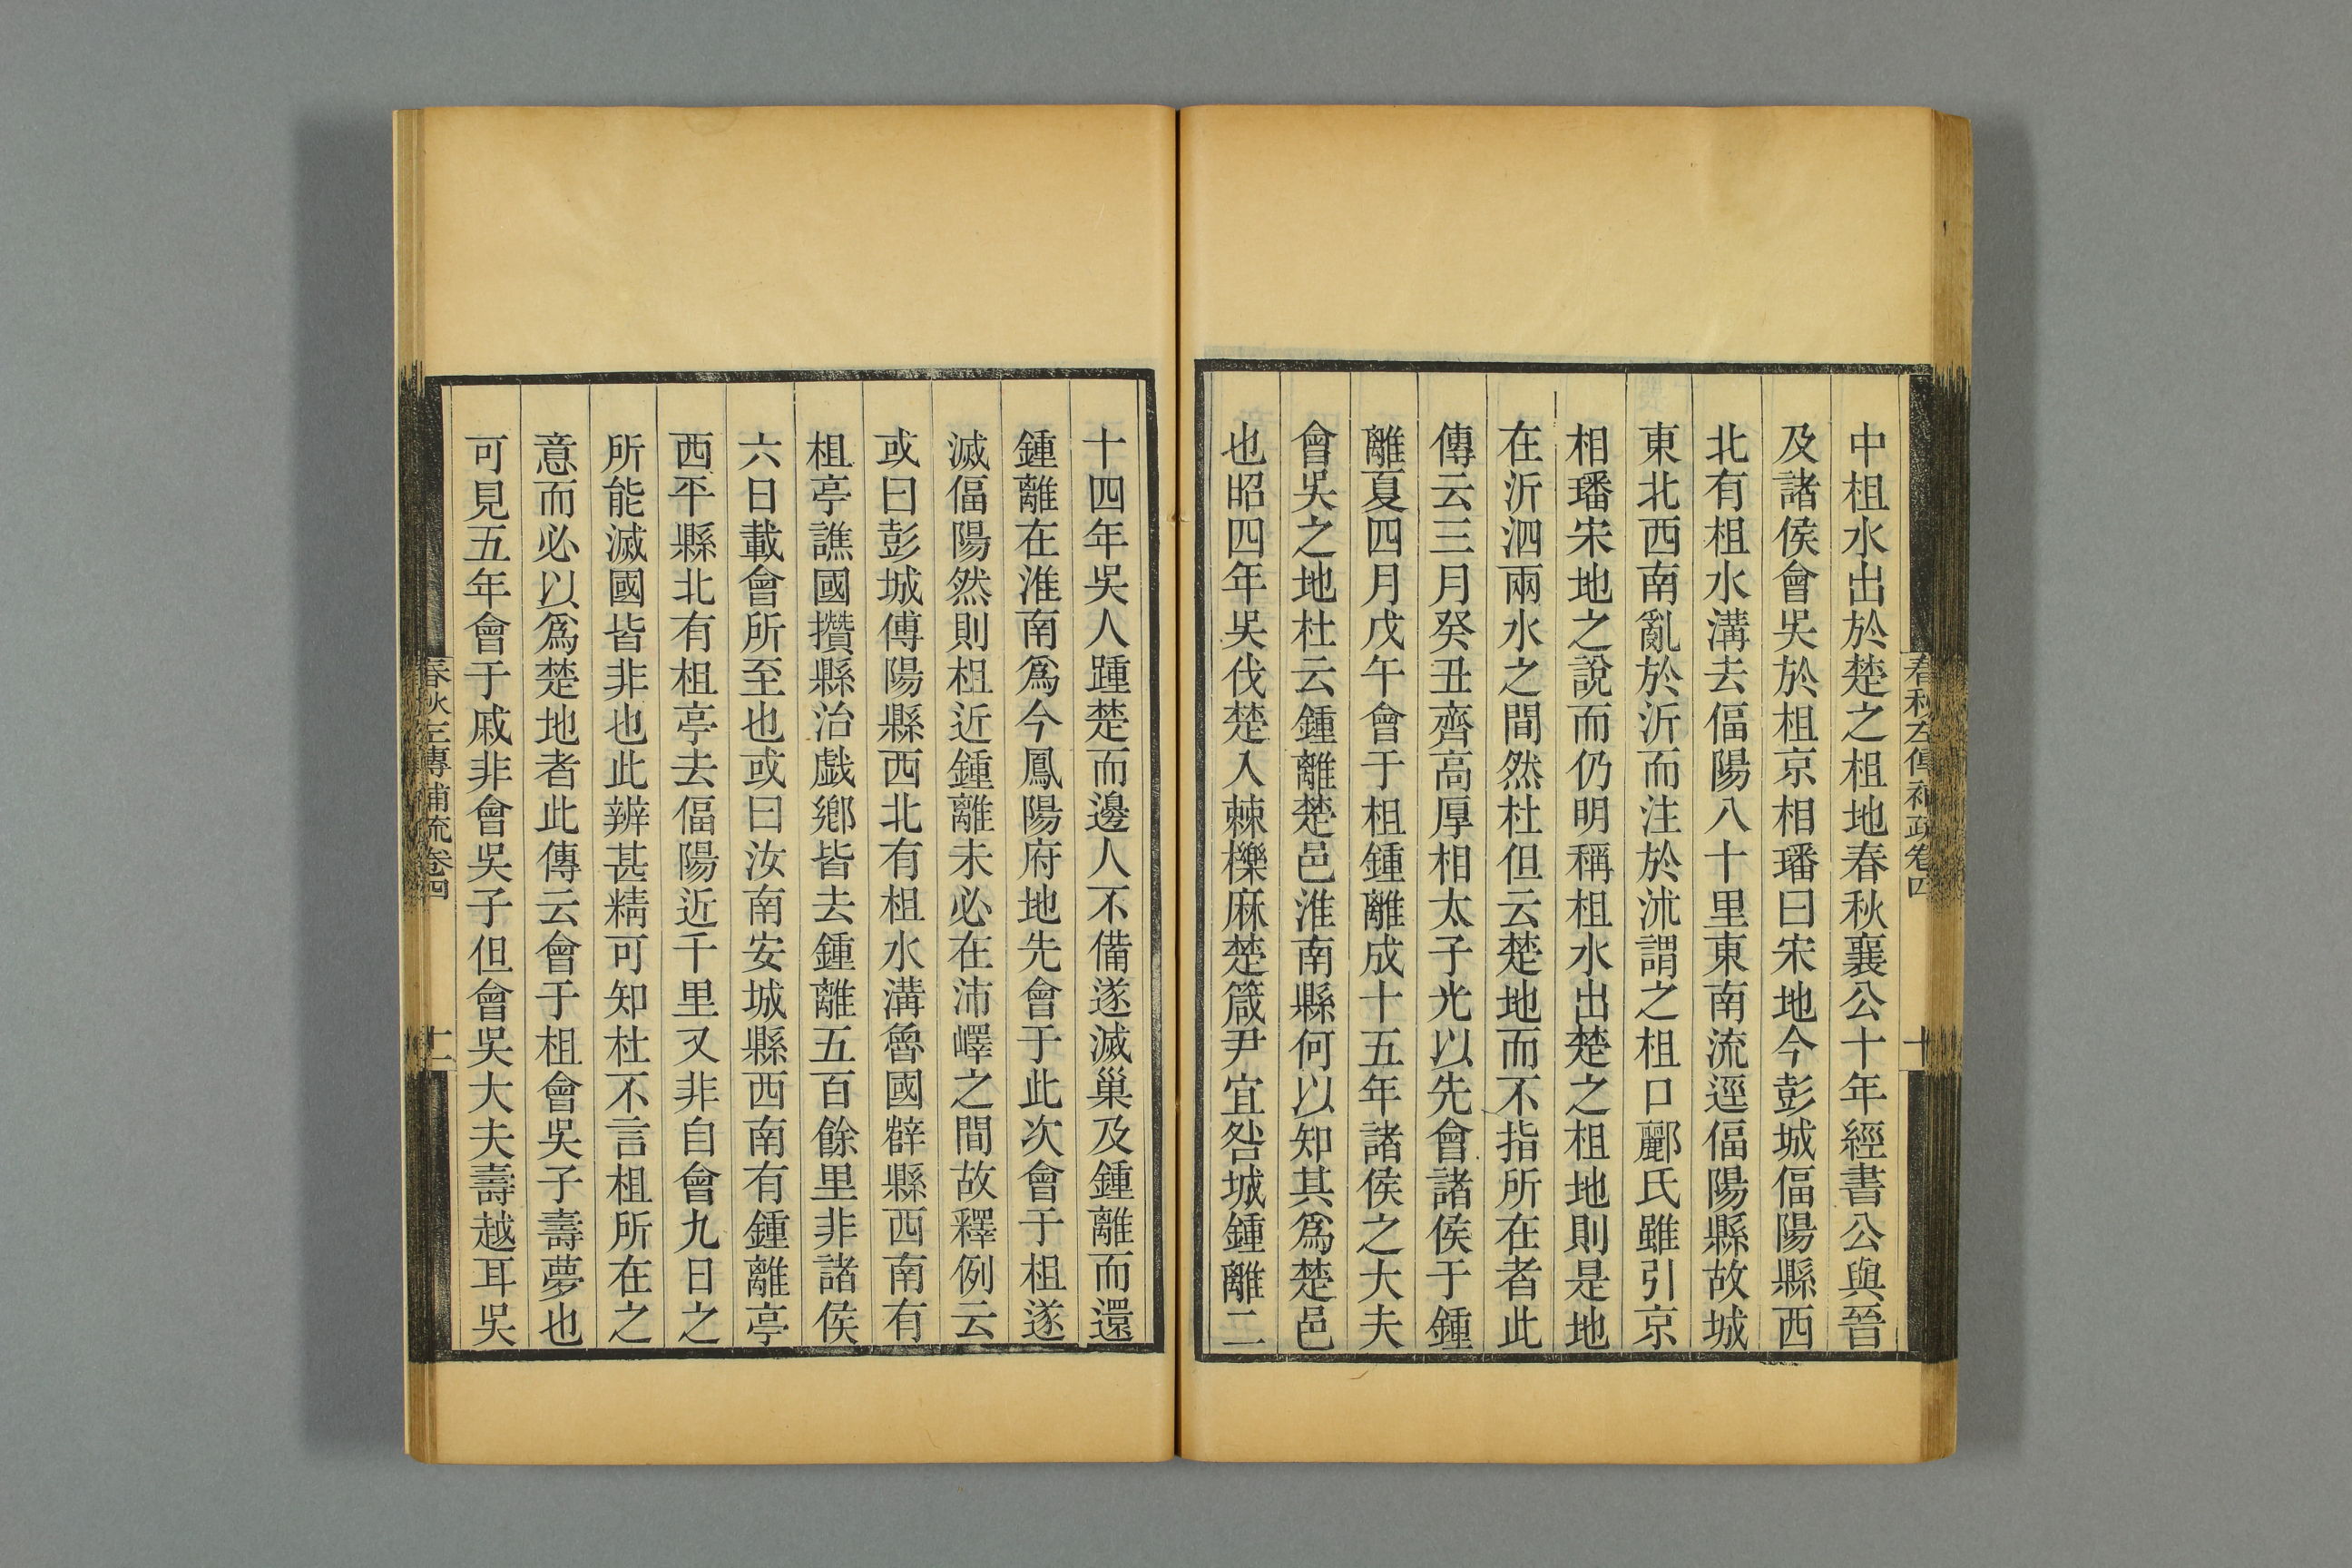 中柤水出於楚之柤地春秋襄公十年經書公與晉
及諸侯會吳於柤京相璠曰宋地今彭城偪陽縣西
北有柤水溝去偪陽八十里東南流逕偪陽縣故城
東北西南亂於沂而注於沭謂之柤口酈氏雖引京
相璠宋地之說而仍明稱柤水出楚之柤地則是地
在沂泗兩水之間然杜但云楚地而不指所在者此
傳云三月癸丑齊高厚相太子光以先會諸侯于鍾
離夏四月戊午會于柤鍾離成十五年諸侯之大夫
會吳之地杜云鍾離楚邑淮南縣何以知其爲楚邑
也昭四年吳伐楚入棘櫟麻楚箴尹宜咎城鍾離二
春秋左傳補疏卷四
十
十四年吳人踵楚而邊人不備遂滅巢及鍾離而還
鍾離在淮南爲今鳳陽府地先會于此次會于柤遂
滅偪陽然則柤近鍾離未必在沛嶧之間故釋例云
或曰彭城傅陽縣西北有柤水溝魯國薛縣西南有
柤亭譙國攢縣治戲鄉皆去鍾離五百餘里非諸侯
六日載會所至也或曰汝南安城縣西南有鍾離亭
西平縣北有柤亭去偪陽近千里又非自會九日之
所能滅國皆非也此辨甚精可知杜不言柤所在之
意而必以爲楚地者此傳云會于柤會吳子壽夢也
可見五年會于戚非會吳子但會吳大夫壽越耳吳
春秋左傳補疏卷四
十一